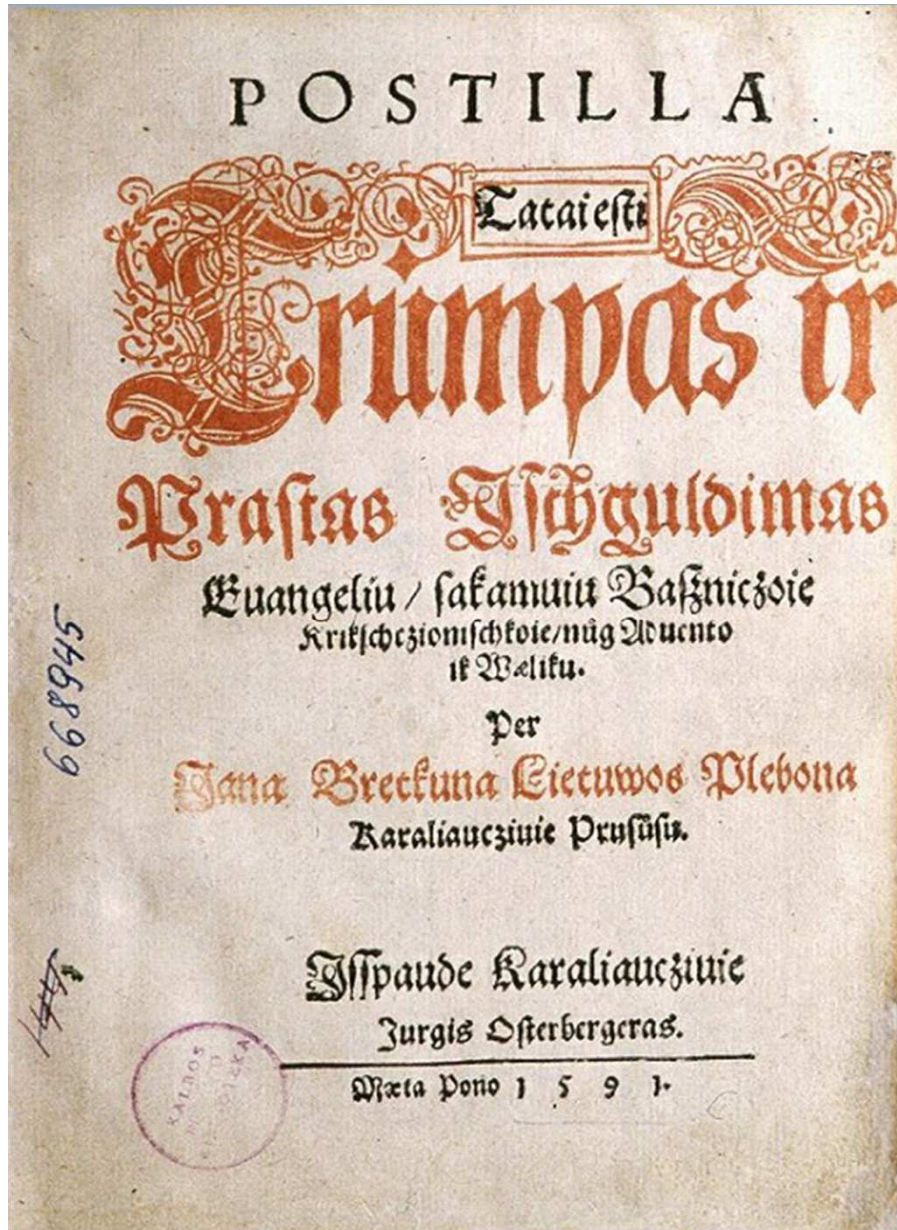 POSTILLA
Tatai esti
Trumpas ir
Prastas Jſchguldimas
Euangeliu / ſakamuiu Baßniczoie
Krikſchczioniſchkoie/nůg Aduento
ik Wæliku.
Per
Jana Bretkuna Lietuwos Plebona
Karaliaucziuie Pruſůſu.
Jſſpaude Karaliaucziuie
Jurgis Oſterbergeras.
Mæta Pono 1 5 9 1.
668945
KALBOS